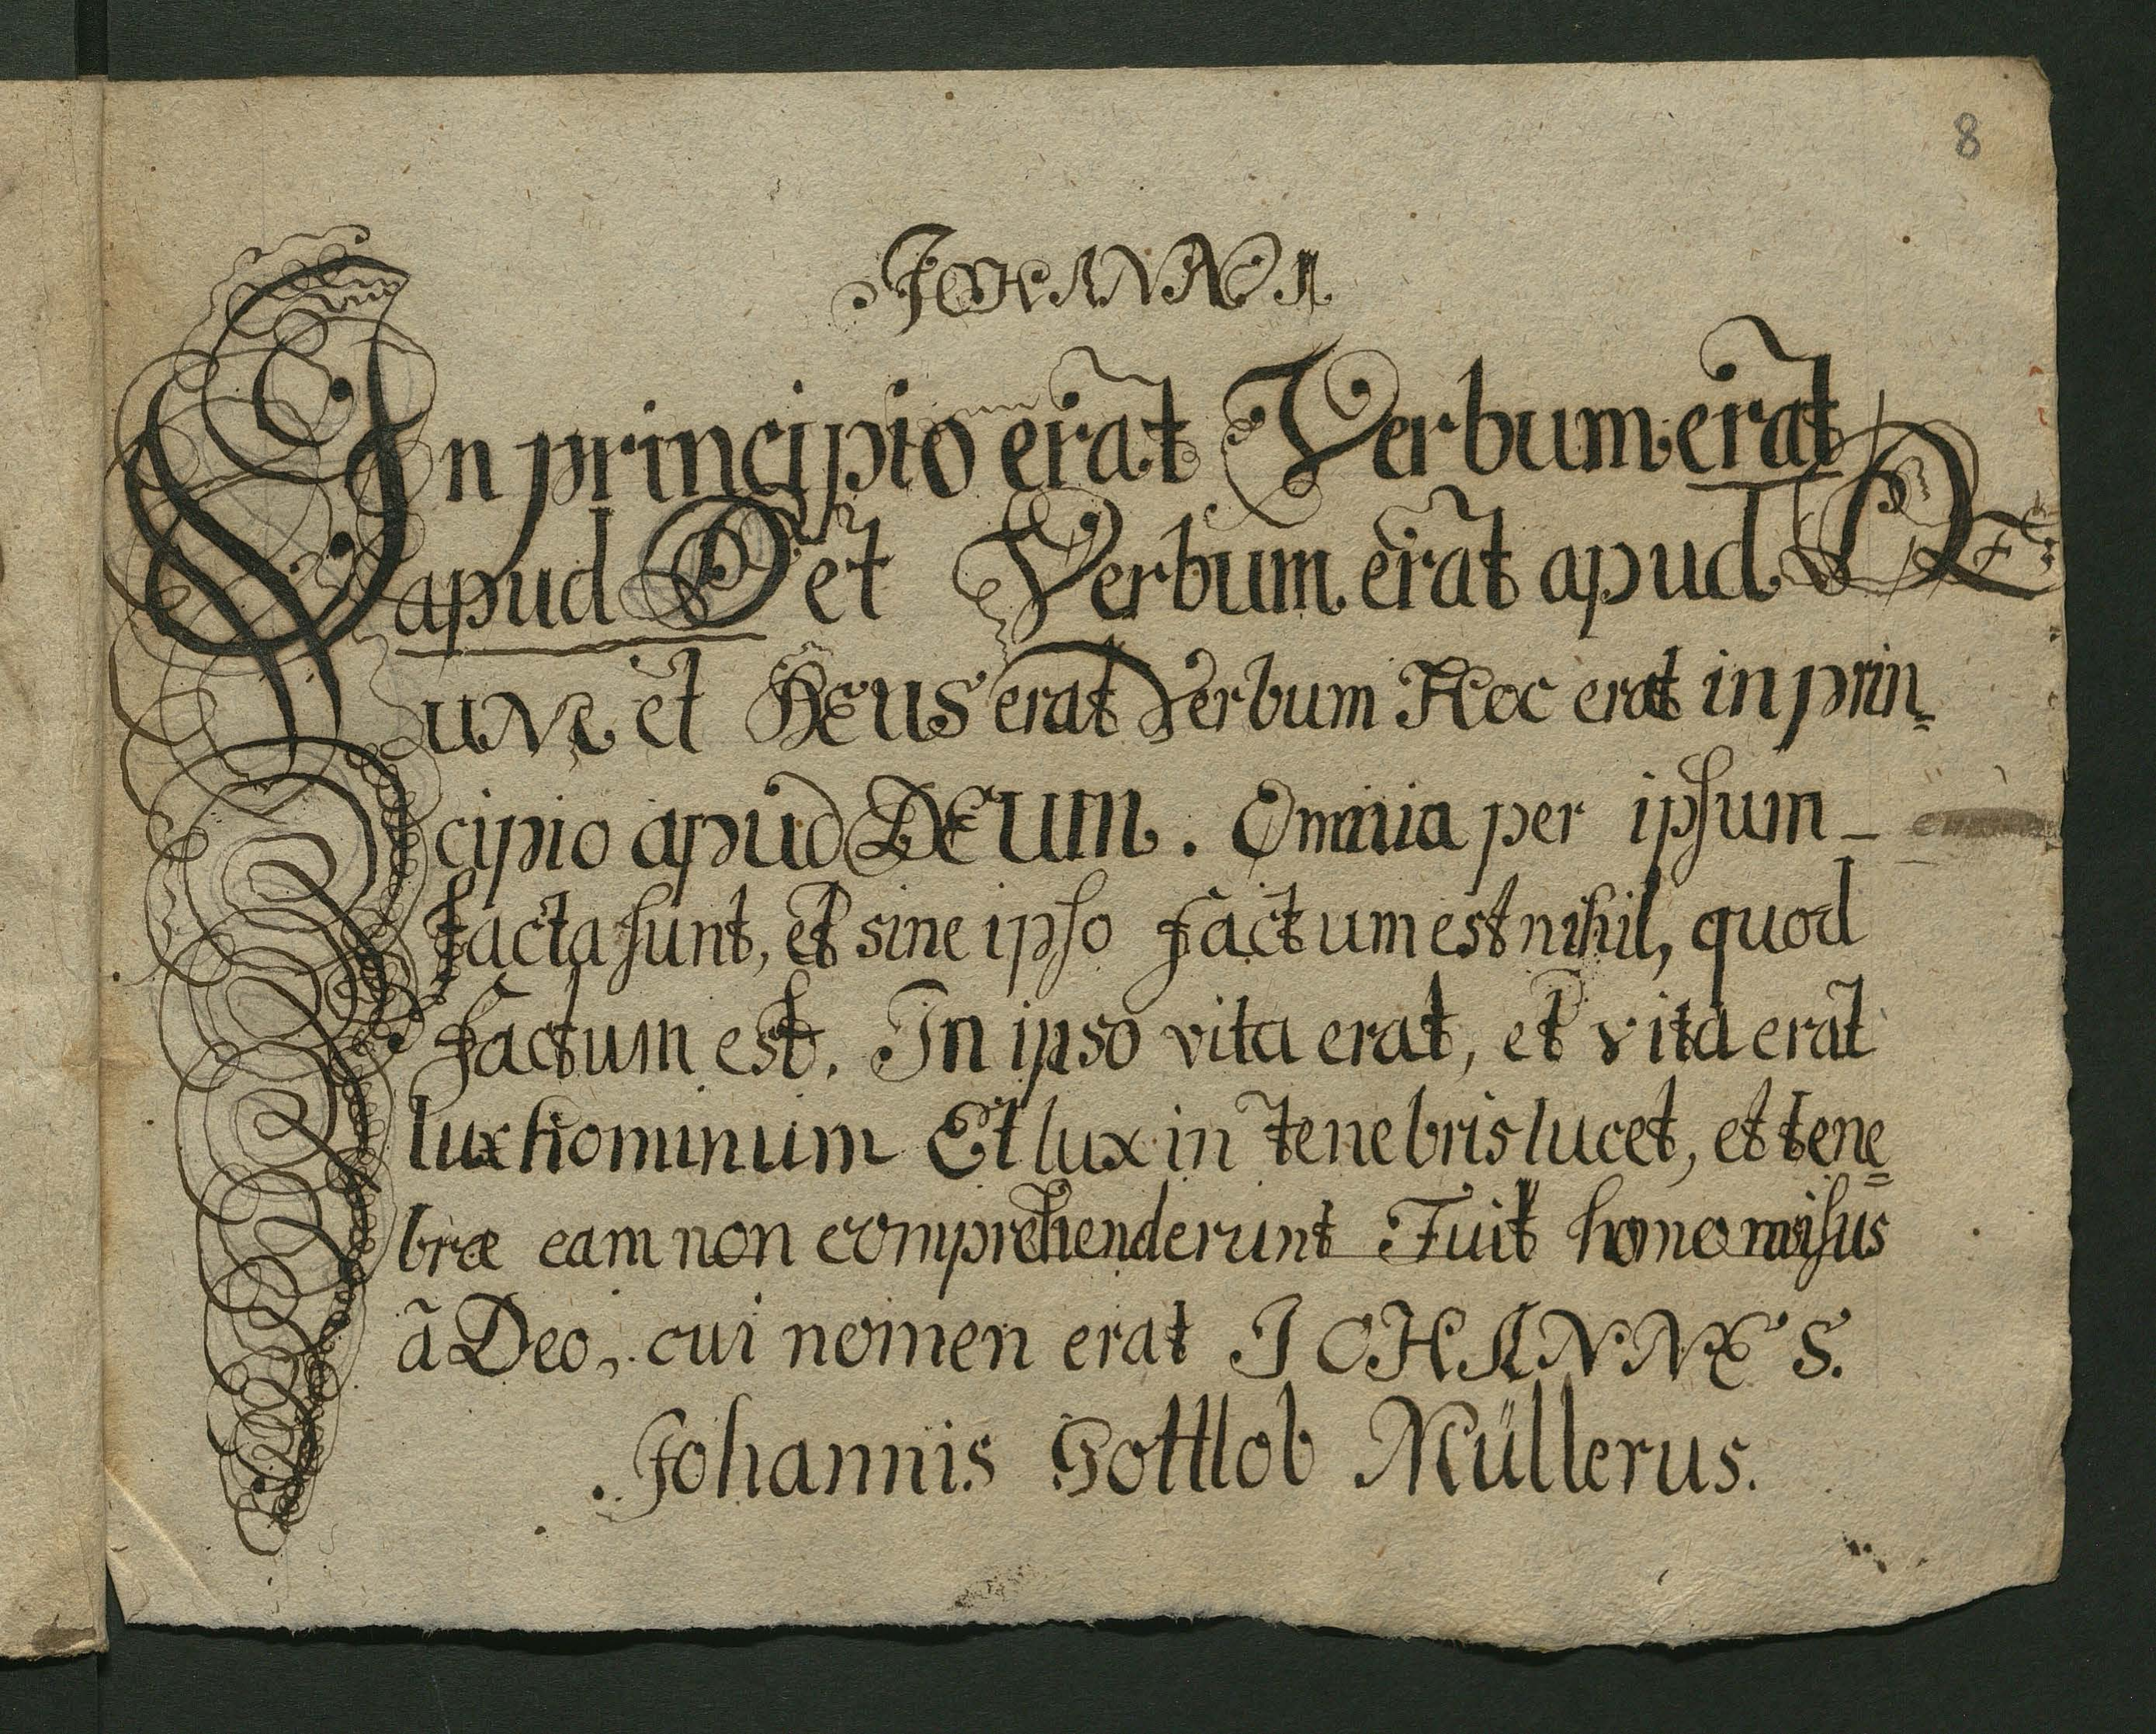 8
JOHANN 1
In principio erat Verbum erat
apud D et Verbum erat apud DE
UM et DEUS erat Verbum Hoc erat in prin=
cipio apud DEUM. Omnia per ipsum
facta sunt, et sine ipso factum est nihil, quod
factum est. In ipso vita erat, et vita erat
lux hominum Et lux in tenebris lucet, et tene=
bræ eam non comprehenderunt Fuit homo misus
ā Deo, cui nomen erat JOHANNES.
Johannis Gottlob Müllerus.